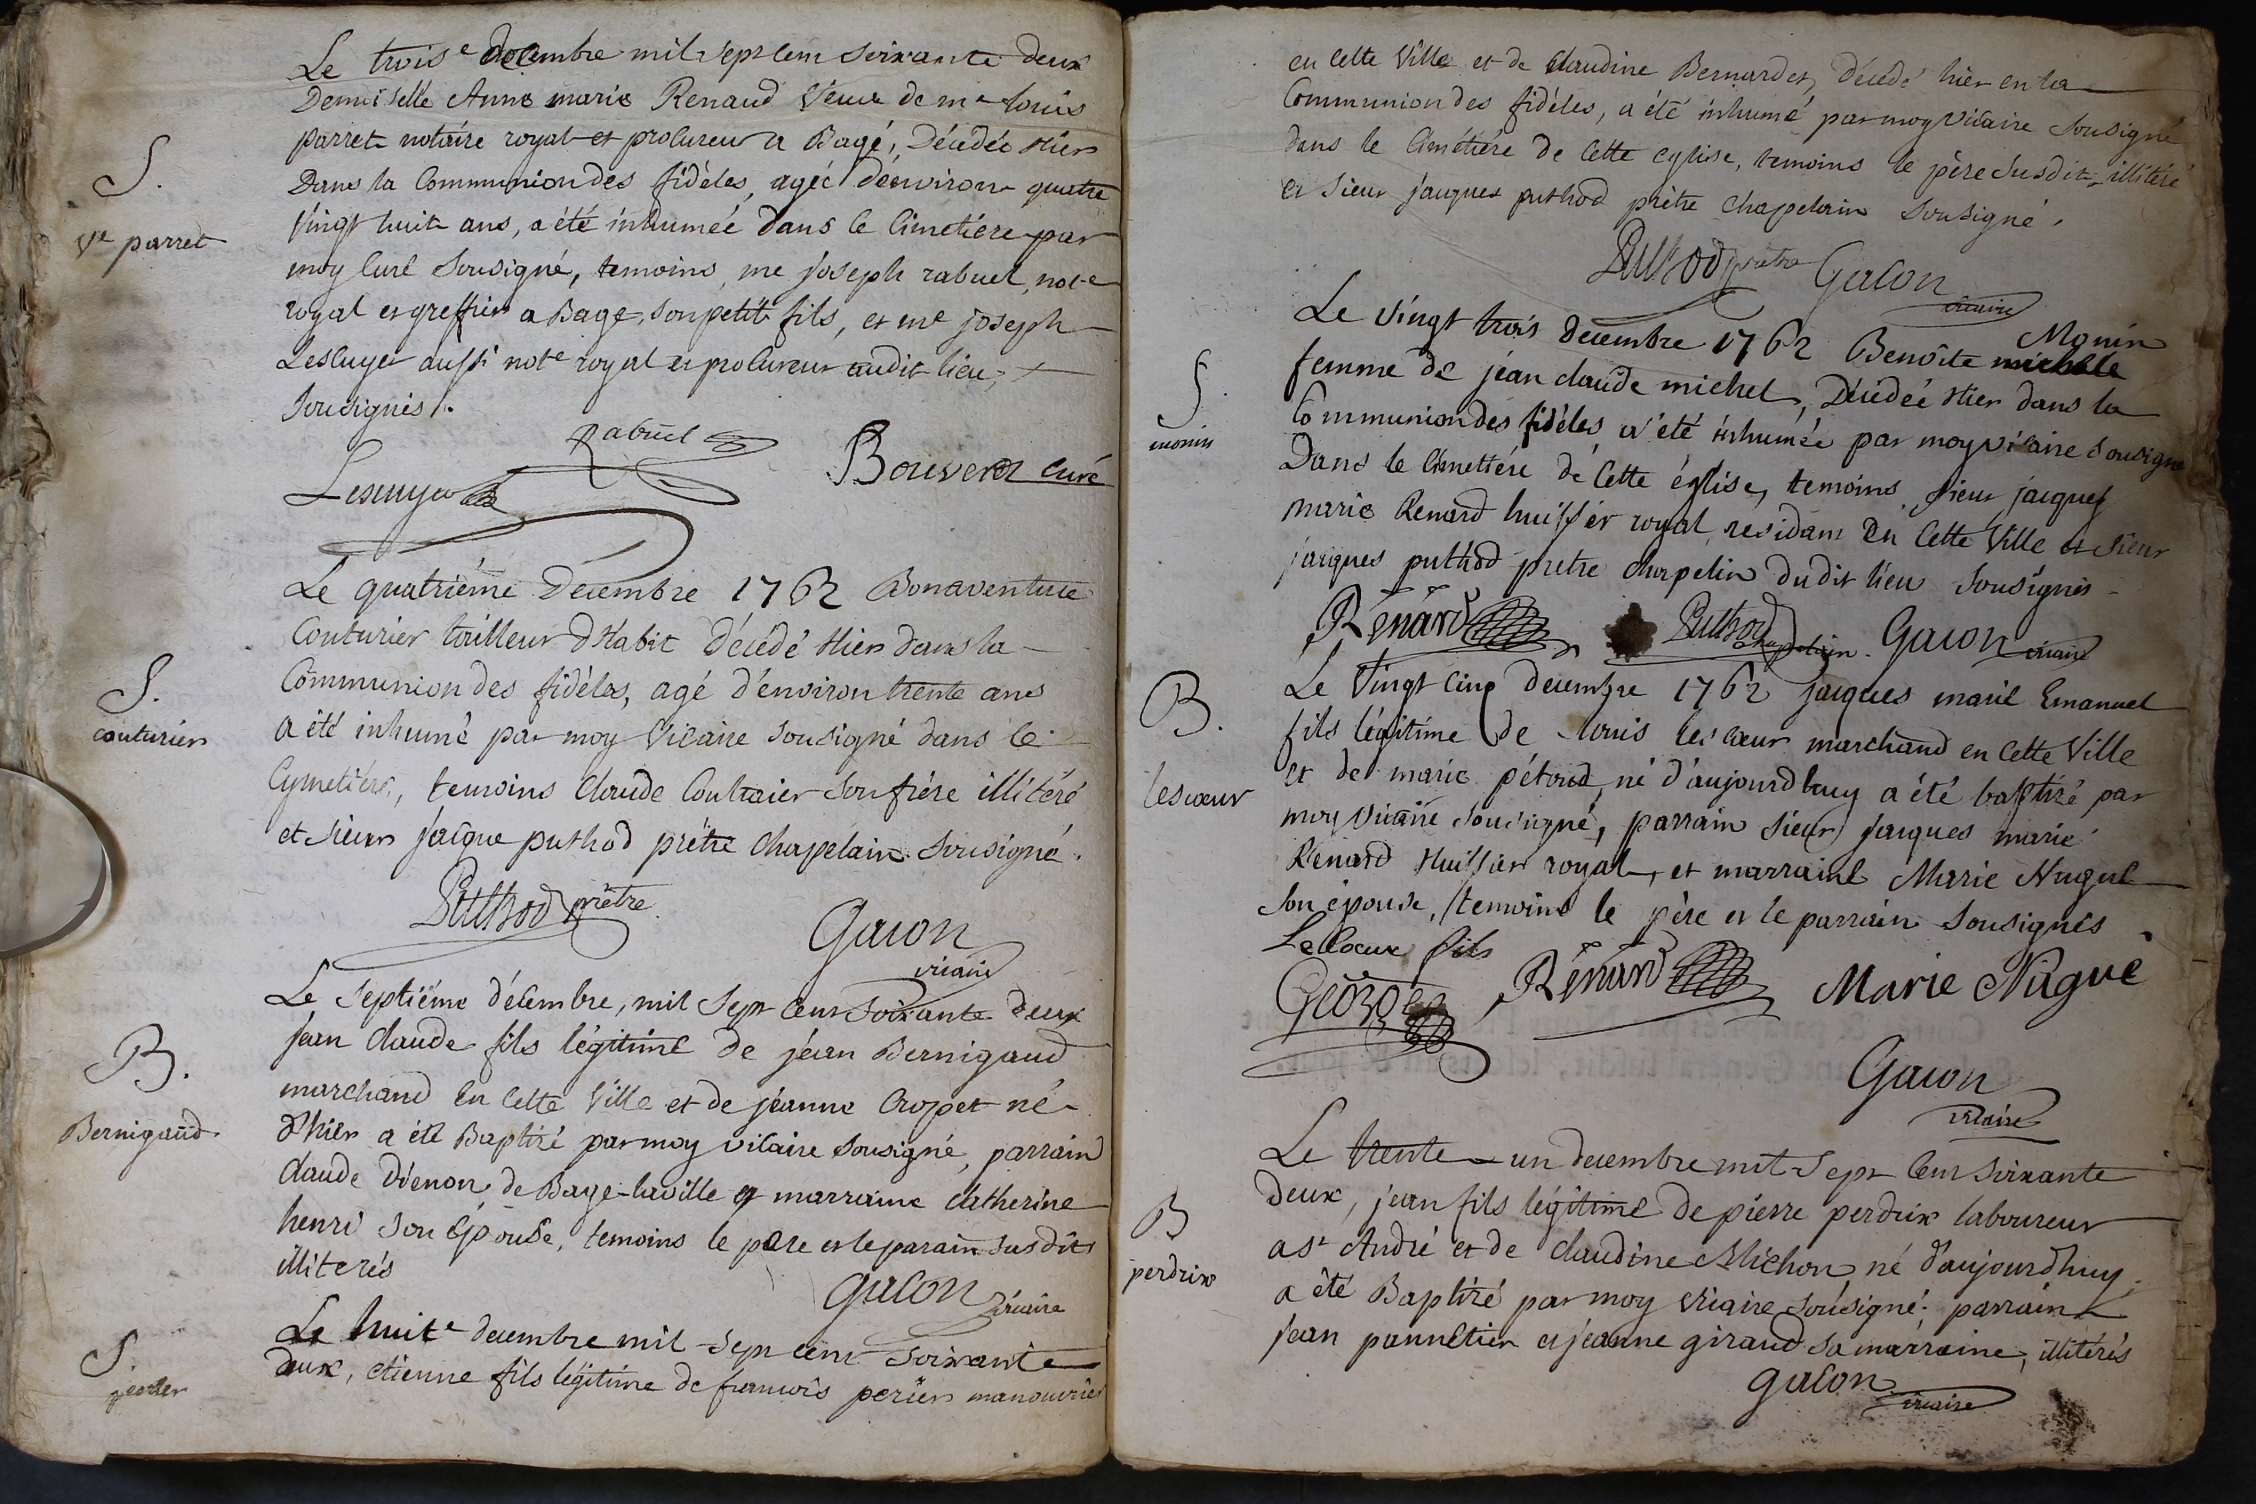 Le trois e decembre mil sept cent soixante deux
Demoiselle Anne marie Renaud veuve de me louis
parret notaire royal et procureur a Bagé, Décédée Hier
Dans la Communion des fidéles, agée d'environ quatre
S.
vingt huit ans, a été inhumée dans le Cimetiére par
Ve parret
moy Curé sousigné, temoins, me joseph rabuel, note
royal et greffier a Bagé, son petit fils, et me joseph
Lescuyer aussi note royal et procureur audit lieu,
sousignés.
Rabuel
Lescuyer
Bouveret curé
Le quatriéme Décembre 1762 Bonaventure
Couturier tailleur d'Habit Décédé Hier dans la
Communion des fidéles, agé d'environ trente ans
S.
couturier
a été inhumé par moy Vicaire sousigné dans le
Cymetiére, temoins Claude Couturier son frére illitéré
et sieur jacque puthod prêtre chapelain sousigné.
Puthod prêtre
Gacon
vicaire
Le septiéme décembre, mil sept cent soixante deux
jean Claude fils légitime de jéan Bernigaud
B.
marchand en cette Ville et de jéanne Cropet né
Bernigaud
d'hier a été Baptizé par moy vicaire sousigné, parrain
Claude Diénon de Bage-la ville et marraine Catherine
henri son Epouse, temoins le pere et le parain susdits
illiterés
Gacon vicaire
Le huit e decembre mil sept cent soixante
S.
deux, etienne fils légitime de francois perier manouvrier
en cette Ville et de Claudine Bernardet, décédé hier en la
Communion des fidéles, a été inhumé par moy Vicaire sousigné
dans le Cimétiére de Cette eglise, temoins le pére susdit illitéré
et sieur jacques puthod prêtre Chapelain sousigné.
Puthod prêtre Gacon
vicaire
Le vingt trois decembre 1762 Benoite Monin
femme de jéan claude michel, Décédée Hier dans la
S.
monin
Communion des fidéles, a été inhumée par moy vicaire sousigné
Dans le Cimettére de Cette église, temoins sieur jacques
marie Renard huissier royal, residant en Cette Ville et sieur
jacques puthod pretre chapelin dudit lieu sousignés
Rénard Puthod chapelain Gacon vicaire
Le Vingt cinq decembre 1762 jacques marie Emanuel
B.
fils légitime de louis lescœur marchand en Cette Ville
lescœur
et de marie pétoud, né d'aujourdhuy a été baptizé par
moy Vicaire sousigné, parrain sieur jacques marie
Renard Huissier royal, et marraine Marie Nugue
son épouse, temoins le pére et le parrain sousignés
LesCoeur fils
Rénard Marie Nugue
Gacon
vicaire
Le trente un decembre mil sept cent soixante
deux, jean fils légitime de piérre perdrix laboureur
B
a st André et de Claudine Michon, né d'aujourdhuy,
perdrix
a été Baptizé par moy vicaire sousigné, parrain
jean pannetier et jeanne giraud sa marraine, illitérés
Gacon
vicaire